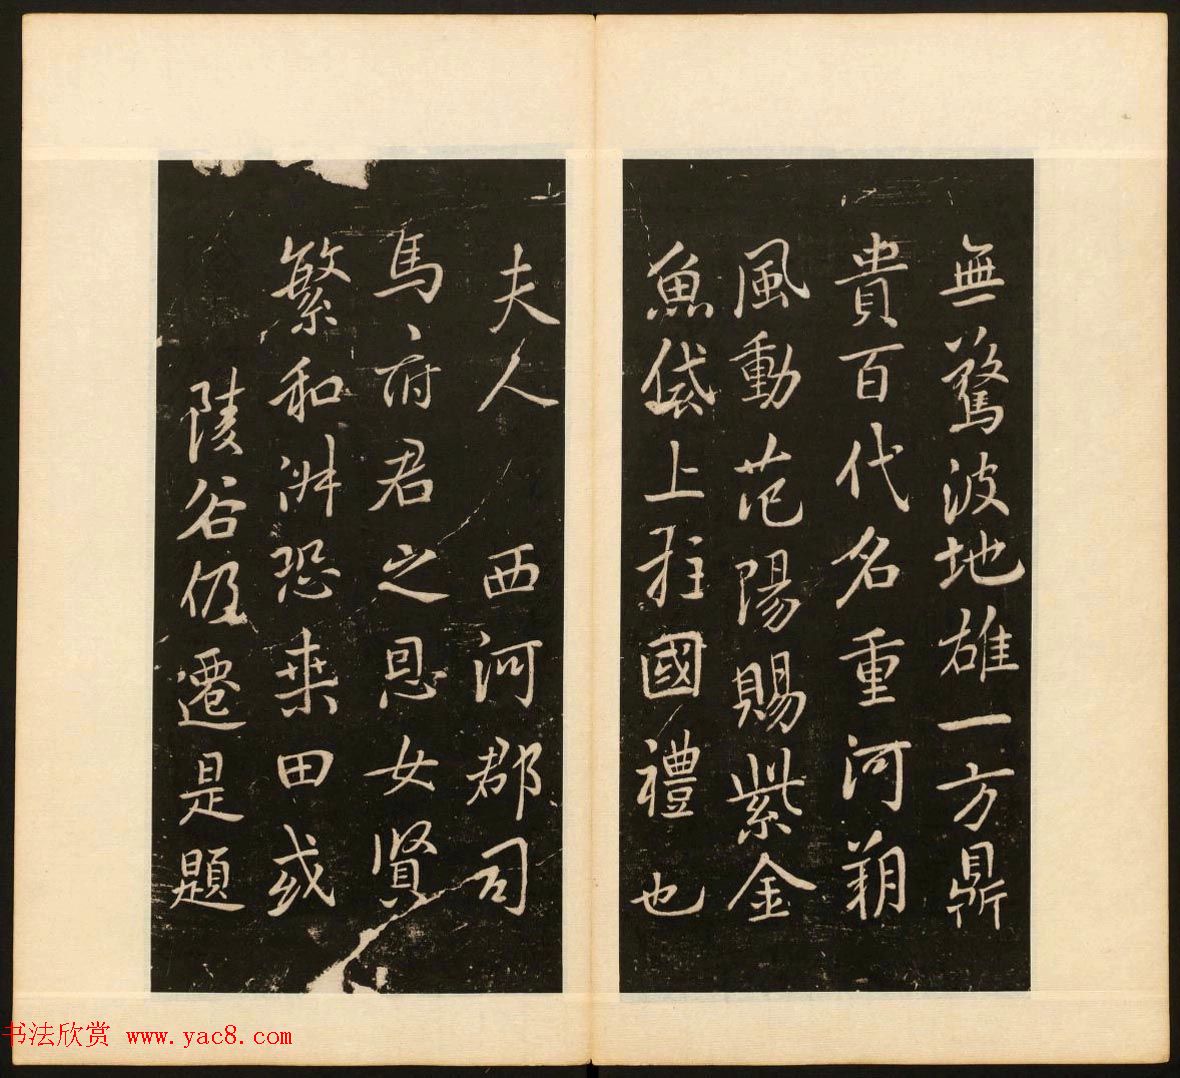 無驚波地雄一方鼎
貴百代名重河朔
風動范陽賜紫金
魚袋上柱國禮也
夫人西河郡司
馬府君之恩女賢
繁和淋恐桒田或
陵谷仍遷是題
书法欣赏 www.yac8.com